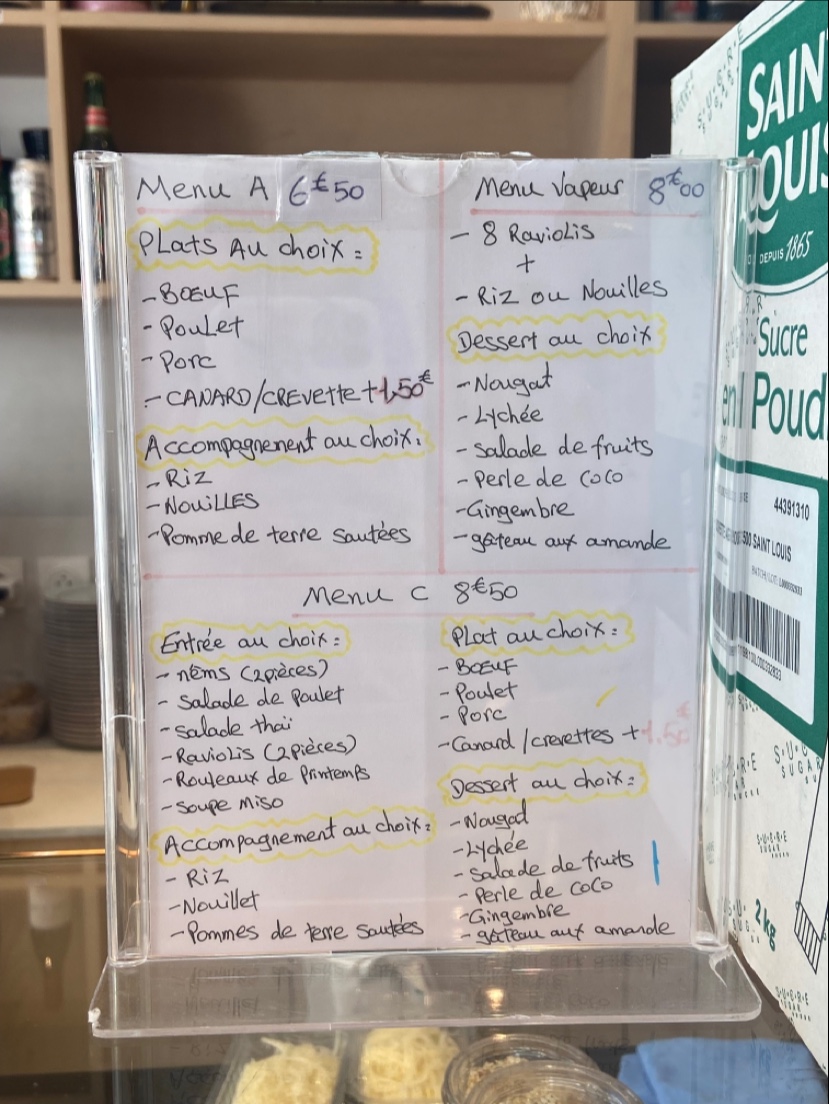 Menu A 6€50
Plats Au choix :
- BŒUF
- Poulet
- Porc
- CANARD/CREVETTE + 1,50€
Accompagnement au choix :
- Riz
- NOUILLES
- Pomme de terre sautées
Menu Vapeur 8€00
- 8 Raviolis
+
- Riz ou Nouilles
Dessert au choix
- Nougat
- Lychée
- Salade de fruits
- Perle de coco
- Gingembre
- gâteau aux amande
Menu C 8€50
Entrée au choix :
- nems (2 pièces)
- Salade de Poulet
- Salade thaï
- Raviolis (2 pièces)
- Rouleaux de Printemps
- Soupe Miso
Accompagnement au choix :
- Riz
- Nouillet
- Pommes de terre sautées
Plat au choix :
- BŒUF
- Poulet
- Porc
- Canard / crevettes + 1.50€
Dessert au choix :
- Nougad
- Lychée
- Salade de fruits
- Perle de coco
- Gingembre
- gâteau aux amande
SAIN
LOUIS
DEPUIS 1865
Sucre
en Poud
44391310
SAINT LOUIS
2 kg